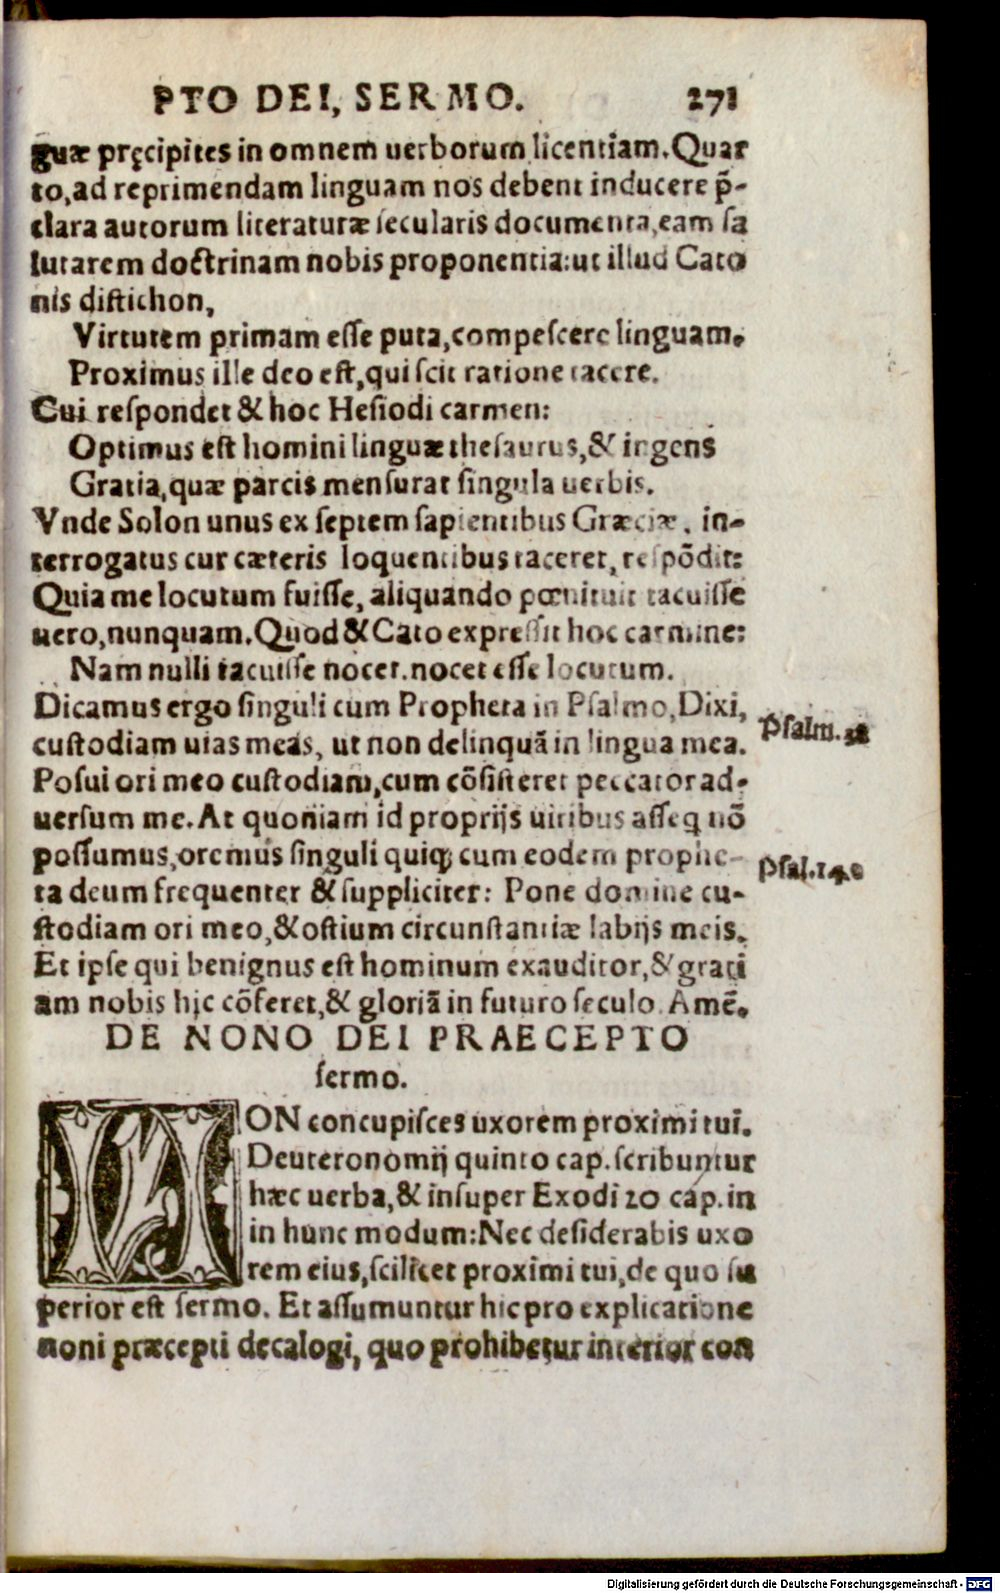 PTO DEI, SERMO. 271
guæ pręcipites in omnem uerborum licentiam. Quar
to, ad reprimendam linguam nos debent inducere p̃-
clara autorum literaturæ ſecularis documenta, eam ſa
lutarem doctrinam nobis proponentia: ut illud Cato
nis diſtichon,
Virtutem primam eſſe puta, compeſcere linguam.
Proximus ille deo eſt, qui ſcit ratione tacere.
Cui reſpondet & hoc Heſiodi carmen:
Optimus eſt homini linguæ theſaurus, & ingens
Gratia, quæ parcis menſurat ſingula uerbis.
Vnde Solon unus ex ſeptem ſapientibus Græciæ, in-
terrogatus cur cæteris loquentibus taceret, reſpõdit:
Quia me locutum fuiſſe, aliquando pœnituit tacuiſſe
uero, nunquam. Quod & Cato expreſſit hoc carmine:
Nam nulli tacuiſſe nocet. nocet eſſe locutum.
Dicamus ergo ſinguli cum Propheta in Pſalmo, Dixi,
cuſtodiam uias meas, ut non delinquã in lingua mea.
Psalm. 38
Poſui ori meo cuſtodiam, cum cõſiſteret peccator ad-
uerſum me. At quoniam id proprijs uiribus aſſeq nõ
poſſumus, oremus ſinguli quiqꝫ cum eodem prophe-
Psal. 140
ta deum frequenter & ſuppliciter: Pone domine cu-
ſtodiam ori meo, & oſtium circunſtantiæ labijs meis.
Et ipſe qui benignus eſt hominum exauditor, & grati
am nobis hic cõferet, & gloriã in futuro ſeculo. Amẽ.
DE NONO DEI PRAECEPTO
ſermo.
NON concupiſces uxorem proximi tui.
Deuteronomij quinto cap. ſcribuntur
hæc uerba, & inſuper Exodi 20 cap. in
in hunc modum: Nec deſiderabis uxo
rem eius, ſcilicet proximi tui, de quo ſu
perior eſt ſermo. Et aſſumuntur hic pro explicatione
noni præcepti decalogi, quo prohibetur interior con
Digitalisierung gefördert durch die Deutsche Forschungsgemeinschaft - DFG